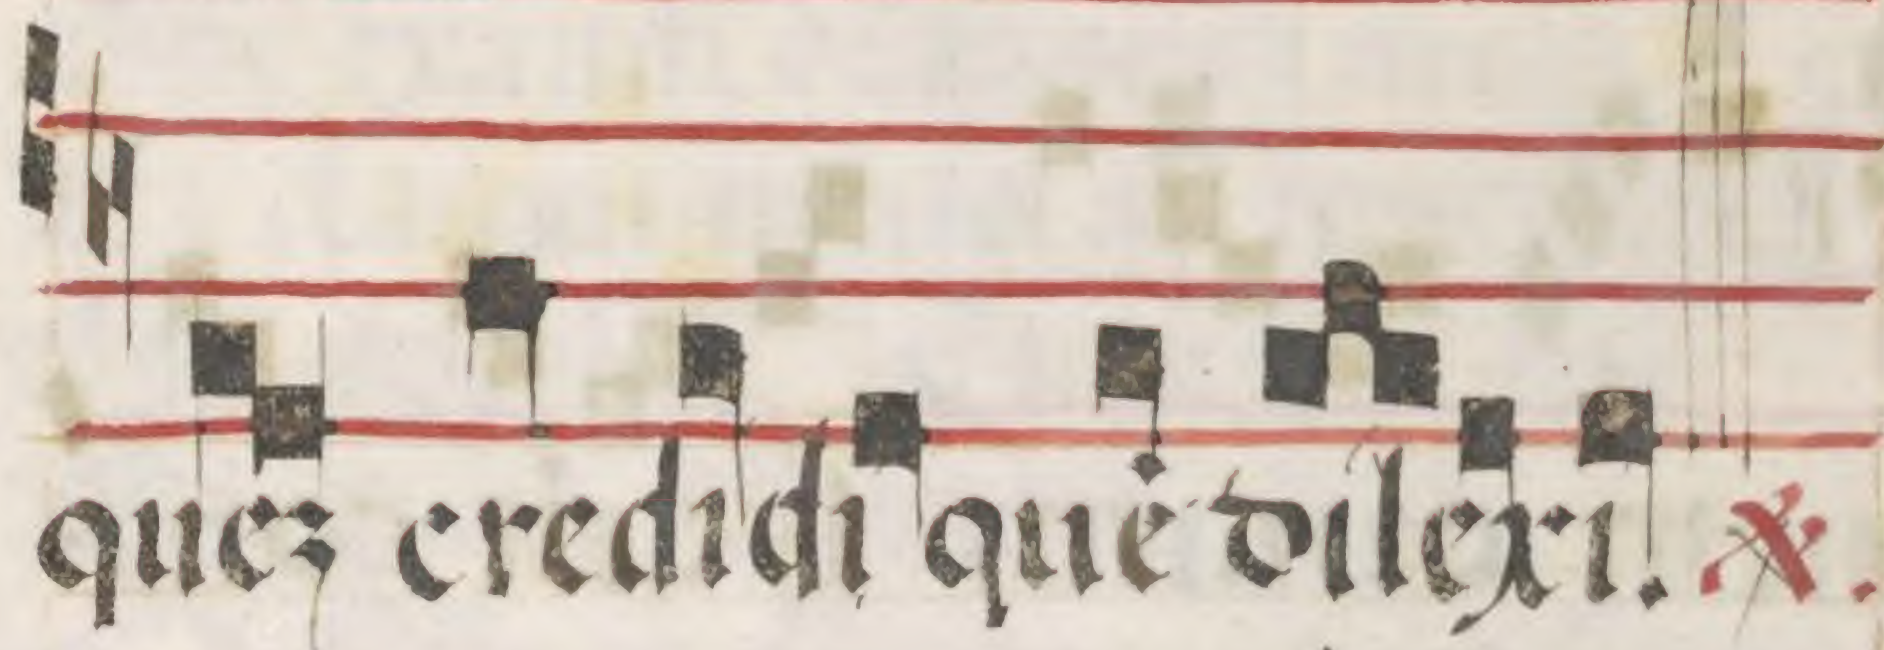 quez credidi quē dilexi. ℟.